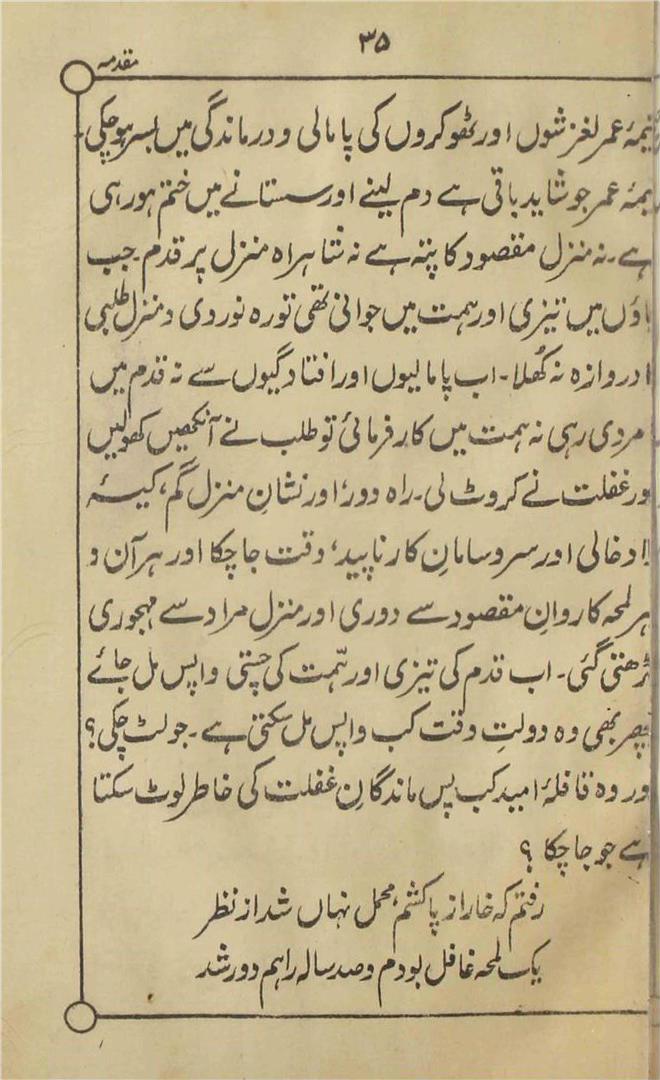 ۳۵
مقدمہ
نیمۂ عمر لغزشوں اور ٹھوکروں کی پامالی و درماندگی میں بسر ہو چکی۔
نیمۂ عمر جو شاید باقی ہے دم لینے اور سستانے میں ختم ہو رہی
ہے۔ نہ منزل مقصود کا پتہ ہے نہ شاہراہ منزل پر قدم۔ جب
پاؤں میں تیزی اور ہمت میں جوانی تھی تو رہ نوردی و منزل طلبی
ا دروازہ نہ کھلا۔ اب پامالیوں اور افتادگیوں سے نہ قدم میں
مردی رہی نہ ہمت میں کارفرمائی تو طلب نے آنکھیں کھولیں
ور غفلت نے کروٹ لی۔ راہ دور، اور نشانِ منزل گم، کیسۂ
زاد خالی اور سروسامانِ کار ناپید، وقت جا چکا اور ہر آن و
ہر لمحہ کاروانِ مقصود سے دوری اور منزلِ مراد سے مہجوری
بڑھتی گئی۔ اب قدم کی تیزی اور ہمّت کی چستی واپس مل جائے
پھر بھی وہ دولتِ وقت کب واپس مل سکتی ہے۔ جو لٹ چکی؟
ور وہ قافلۂ امید کب پس ماندگانِ غفلت کی خاطر لوٹ سکتا
ہے جو جا چکا ؟
رفتم کہ خار از پا کشم، محمل نہاں شد از نظر
یک لمحہ غافل بودم و صد سالہ راہم دور شد